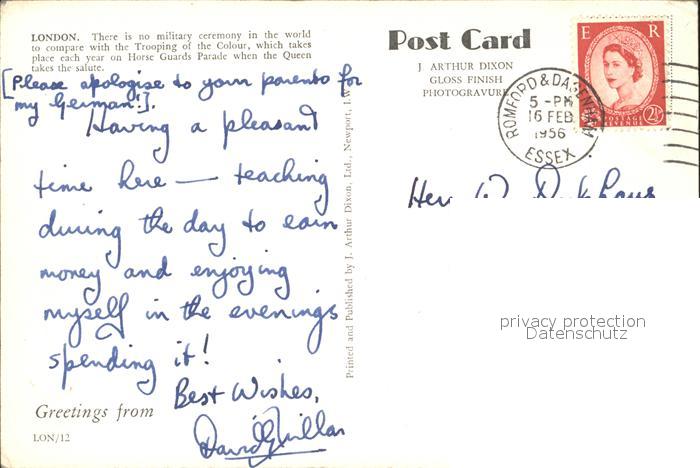 LONDON. There is no military ceremony in the world
to compare with the Trooping of the Colour, which takes
place each year on Horse Guards Parade when the Queen
takes the salute.
[Please apologise to your parents for
my German!].
Having a pleasant
time here — teaching
during the day to earn
money and enjoying
myself in the evenings
spending it!
Best Wishes,
David
Greetings from
LON/12
Printed and Published by J. Arthur Dixon, Ltd., Newport, I.W.
Post Card
J ARTHUR DIXON
GLOSS FINISH
PHOTOGRAVURE
E R
POSTAGE
REVENUE
2½
ROMFORD & DAGENHAM
5 - PM
16 FEB
1956
ESSEX
privacy protection
Datenschutz